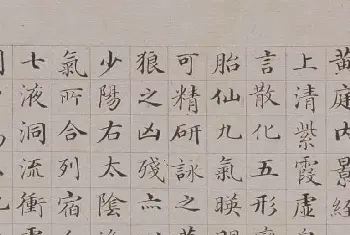 黃庭內景經
上清紫霞虛
言散化五形
胎仙九氣暎
可精研詠之
狼之凶殘亦
少陽右太陰
氣所合列宿
七液洞流衝